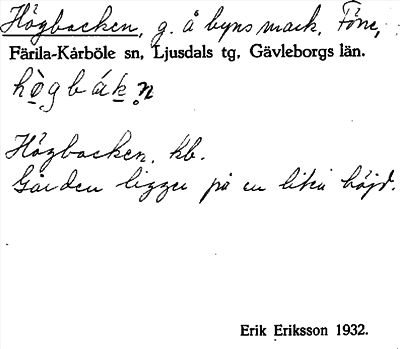 Högbacken, g. å byns mark, Föne,
Färila-Kårböle sn, Ljusdals tg, Gävleborgs län.
hògbákn
Högbacken, kb.
Gården ligger på en liten höjd.
Erik Eriksson 1932.